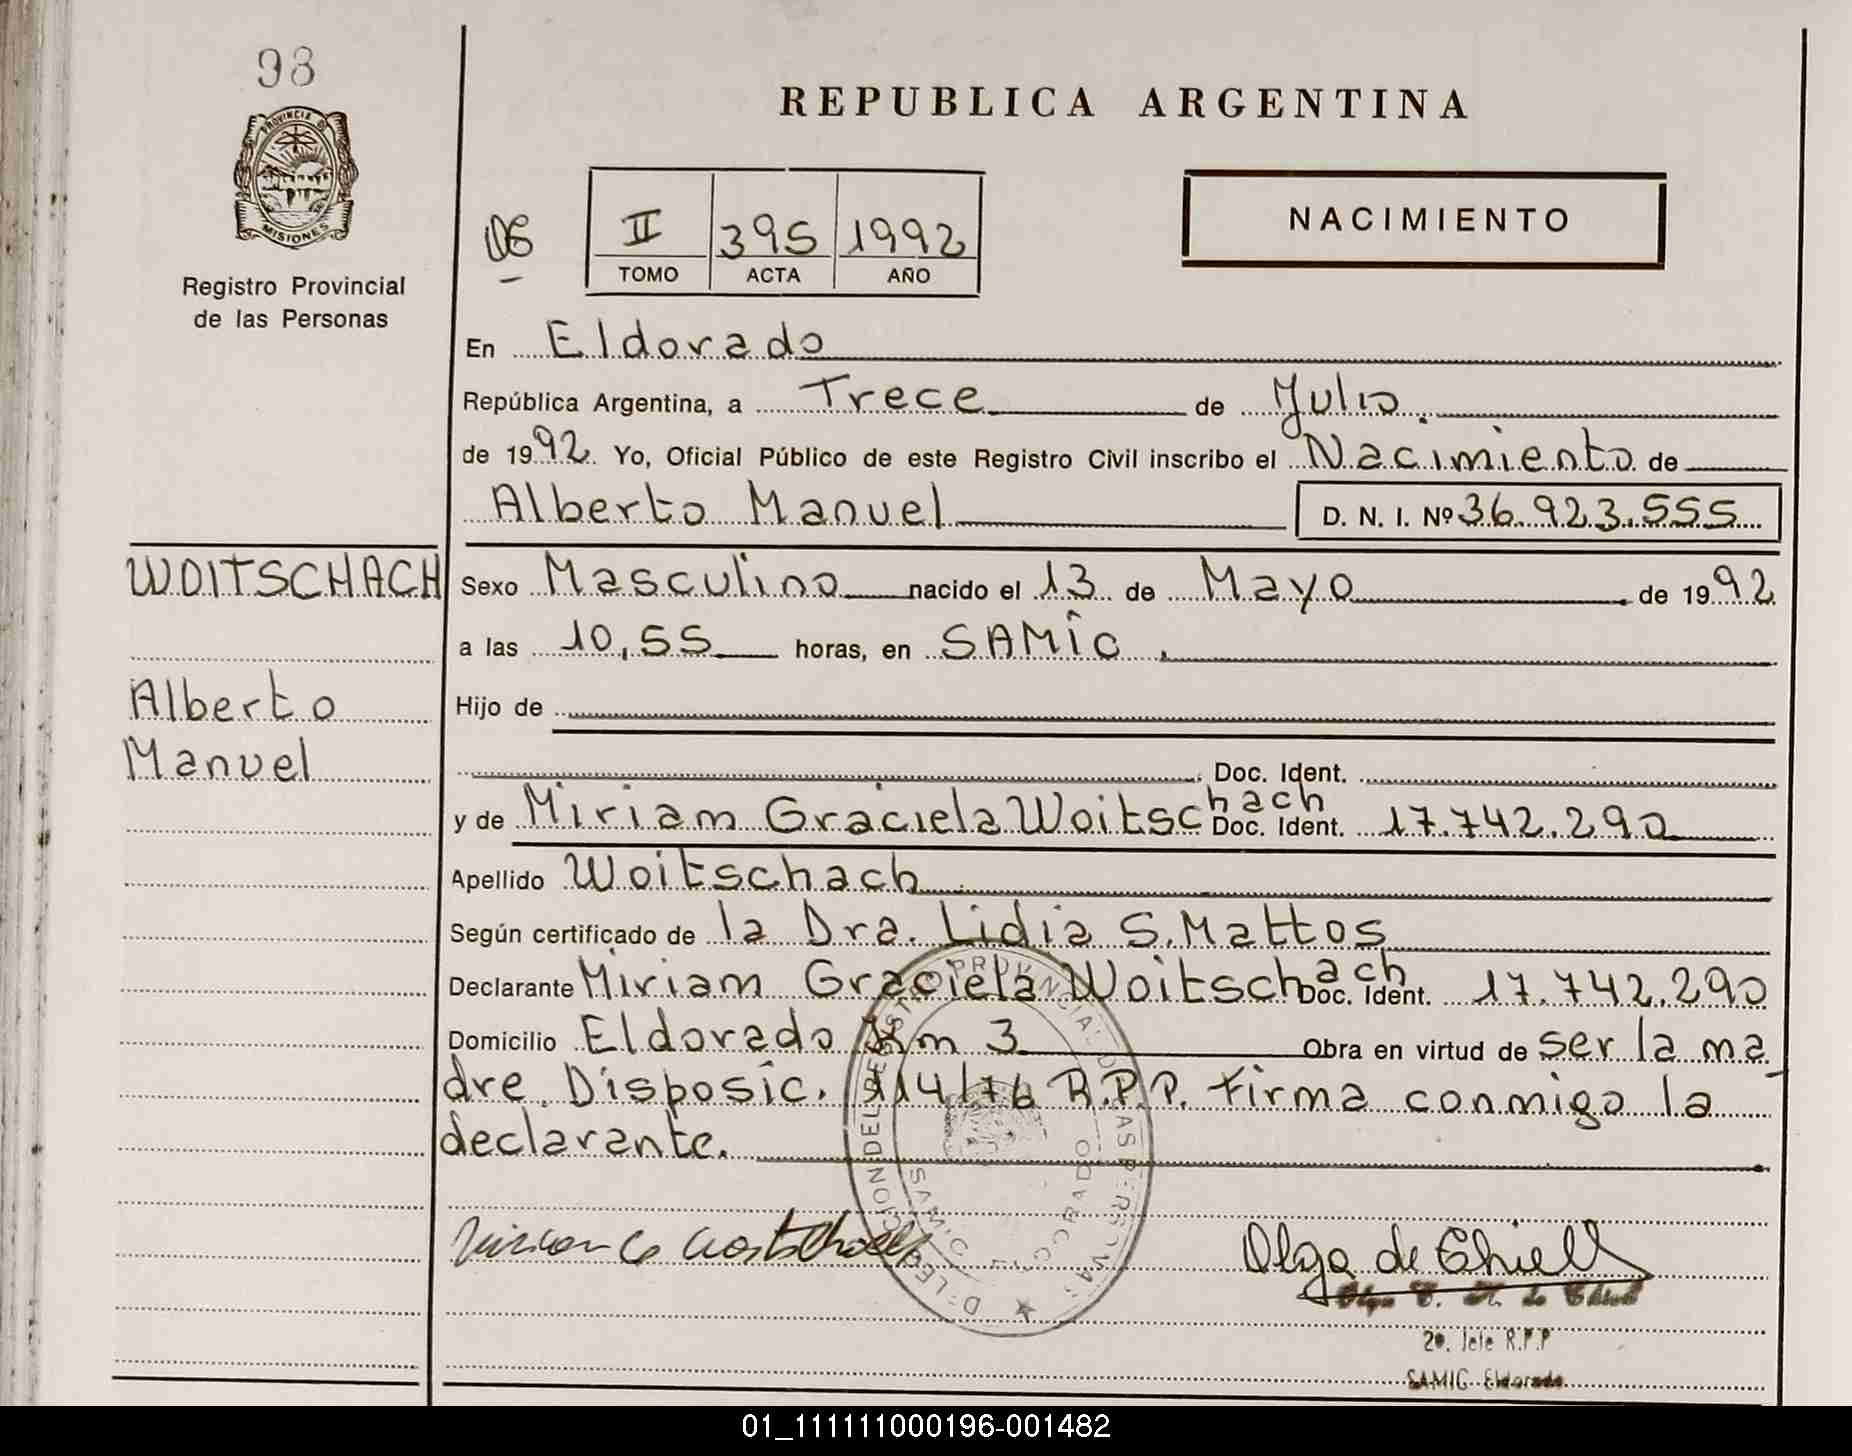 98
PROVINCIA DE
MISIONES
Registro Provincial
de las Personas
REPUBLICA ARGENTINA
NACIMIENTO
06
II 395 1992
TOMO ACTA AÑO
En Eldorado
República Argentina, a Trece de Julio.
de 1992. Yo, Oficial Público de este Registro Civil inscribo el Nacimiento de
Alberto Manuel D. N. I. Nº 36.923.555
WOITSCHACH
Alberto
Manuel
Sexo Masculino nacido el 13 de Mayo de 1992
a las 10,55 horas, en SAMIC.
Hijo de
Doc. Ident.
y de Miriam Graciela Woitschach Doc. Ident. 17.742.290
Apellido Woitschach
Según certificado de la Dra. Lidia S. Mattos
Declarante Miriam Graciela Woitschach Doc. Ident. 17.742.290
Domicilio Eldorado Km 3 Obra en virtud de ser la ma
dre. Disposic. 114/76 R.P.P. Firma conmigo la
declarante.
DELEGACION DEL REGISTRO PROVINCIAL DE LAS PERSONAS
SAMIC
Olga de Chiell
2º. Jefe R.P.P
SAMIC Eldorado
01_111111000196-001482